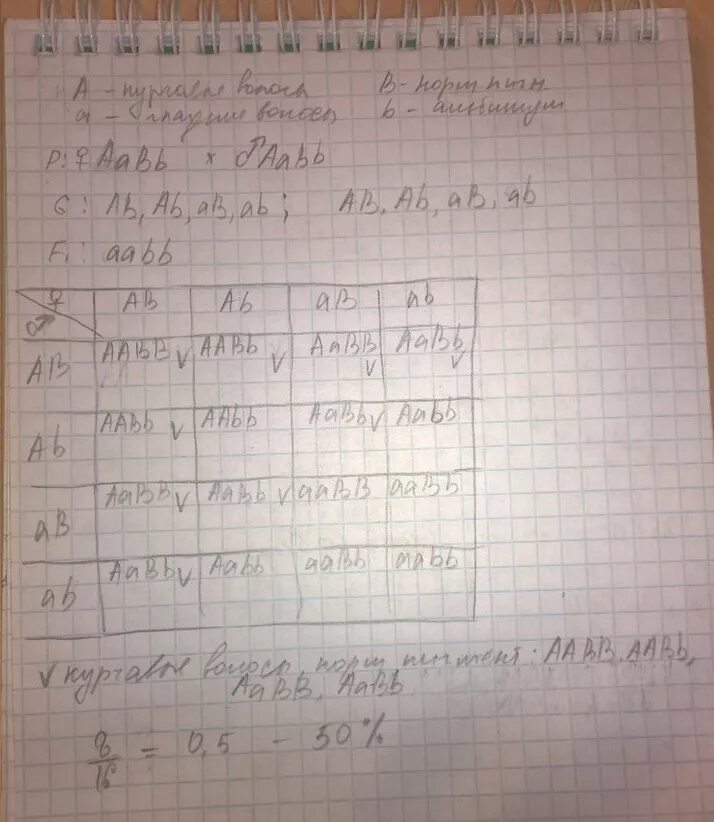 A - курчавые волосы B - норм пигм
a - гладкие волосы b - альбинизм
P: ♀ AaBb × ♂ AaBb
G: Ab, Ab, aB, ab; AB, Ab, aB, ab
F₁: aabb
♀ AB Ab aB ab
♂
AB AABB V AABb V AaBB V AaBb V
Ab AABb V AAbb AaBb V Aabb
aB AaBB V AaBb V aaBB aaBb
ab AaBb V Aabb aaBb aabb
V курчавые волосы, норм пигмент: AABB, AABb,
AaBB, AaBb
8/16 = 0,5 - 50%